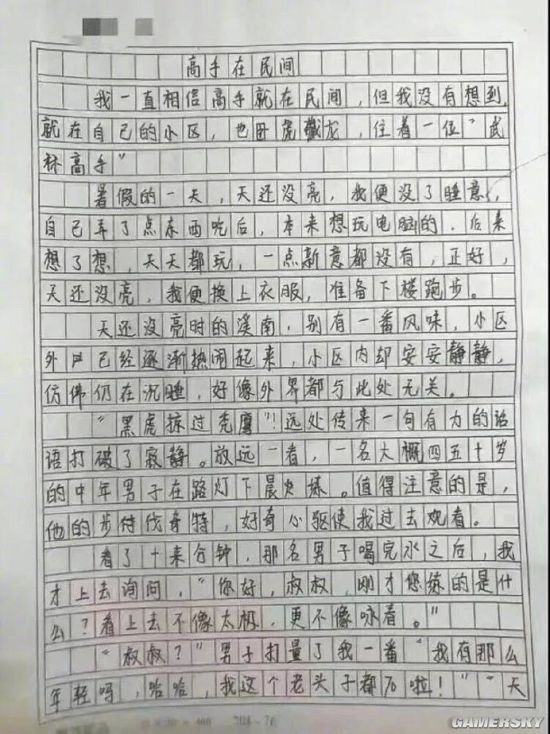 高手在民间
我一直相信高手就在民间，但我没有想到，
就在自己的小区，也卧虎藏龙，住着一位“武
林高手”
暑假的一天，天还没亮，我便没了睡意，
自己弄了点东西吃后，本来想玩电脑的，后来
想了想，天天都玩，一点新意都没有，正好，
天还没亮，我便换上衣服，准备下楼跑步。
天还没亮时的溪南，别有一番风味，小区
外户已经逐渐热闹起来，小区内却安安静静，
仿佛仍在沉睡，好像外界都与此处无关。
“黑虎掠过秃鹰”！远处传来一句有力的话
语打破了寂静。放远一看，一名大概四五十岁
的中年男子在路灯下晨练。值得注意的是，
他的步伐奇特，好奇心驱使我过去观看。
看了十来分钟，那名男子喝完水之后，我
才上去询问，“你好，叔叔，刚才您练的是什
么？看上去不像太极，更不像咏春。”
“叔叔？”男子打量了我一番“我有那么
年轻吗，哈哈，我这个老头子都70啦！”“天
GAMERSKY